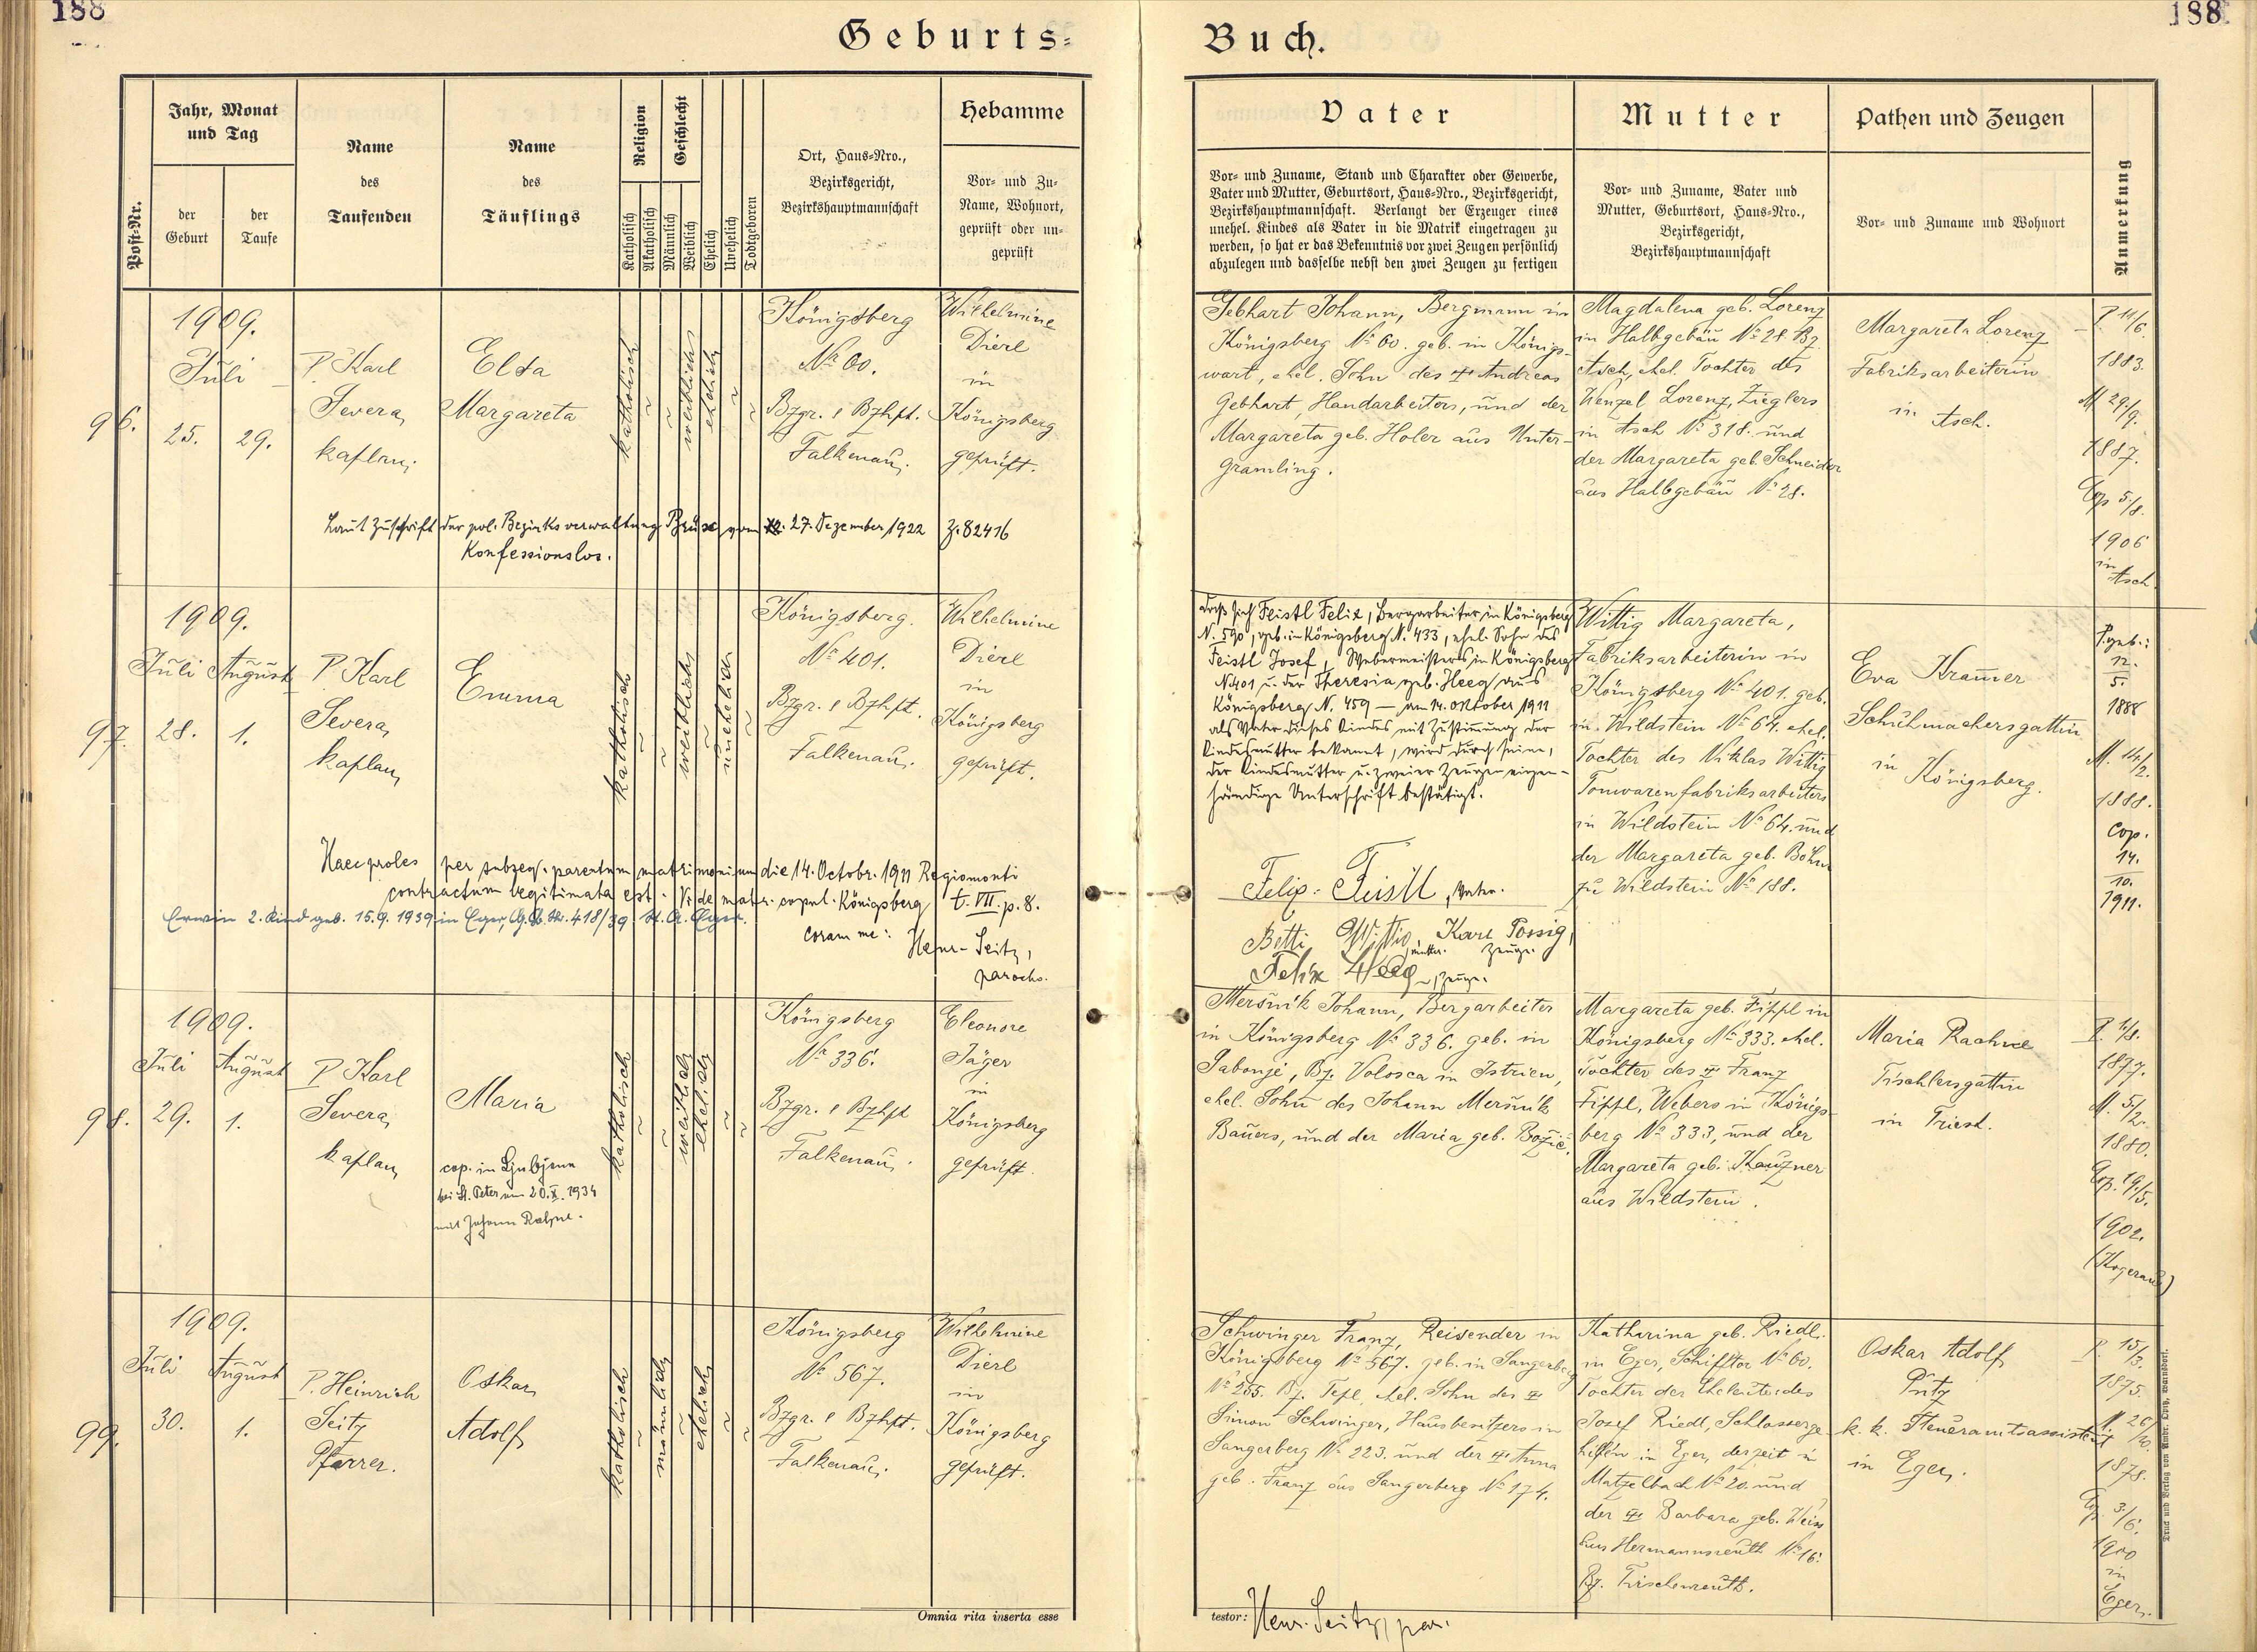 188
188
Geburts-
Buch.
Post-Nr.
Jahr, Monat
und Tag
der
Geburt
der
Taufe
Name
des
Taufenden
Name
des
Täuflings
Religion
Katholisch
Akatholisch
Geschlecht
Männlich
Weiblich
Ehelich
Unehelich
Todtgeboren
Ort, Haus-Nro.,
Bezirksgericht,
Bezirkshauptmannschaft
Hebamme
Vor- und Zu-
Name, Wohnort,
geprüft oder un-
geprüft
Vater
Vor- und Zuname, Stand und Charakter oder Gewerbe,
Vater und Mutter, Geburtsort, Haus-Nro., Bezirksgericht,
Bezirkshauptmannschaft. Verlangt der Erzeuger eines
unehel. Kindes als Vater in die Matrik eingetragen zu
werden, so hat er das Bekenntnis vor zwei Zeugen persönlich
abzulegen und dasselbe nebst den zwei Zeugen zu fertigen
Mutter
Vor- und Zuname, Vater und
Mutter, Geburtsort, Haus-Nro.,
Bezirksgericht,
Bezirkshauptmannschaft
Pathen und Zeugen
Vor- und Zuname und Wohnort
Anmerkung
96.
1909.
Juli
25. 29.
P. Karl
Severa,
Kaplan.
Elsa
Margareta
katholisch
weiblich
ehelich
Königsberg
No 60.
Bzgr. & Bzhpt.
Falkenau.
Wilhelmine
Dierl
in
Königsberg
geprüft.
Laut Zuschrift der pol. Bezirksverwaltung Brüx vom 27. Dezember 1922 Z. 82416
Konfessionslos.
Gebhart Johann, Bergmann in
Königsberg No 60. geb. in Königs-
wart, ehel. Sohn des † Andreas
Gebhart, Handarbeiters, und der
Margareta geb. Holer aus Unter-
gramling.
Magdalena geb. Lorenz
in Halbgebäu No 28. Bz.
Asch, ehel. Tochter des
Wenzel Lorenz, Zieglers
in Asch No 318. und
der Margareta geb. Schneider
aus Halbgebäu No 28.
Margareta Lorenz
Fabriksarbeiterin
in Asch.
P. 11/6.
1883.
M. 29/9.
1887.
Cop 5/8.
1906
in
Asch.
97.
1909.
Juli August
28. 1.
P. Karl
Severa,
Kaplan,
Emma
katholisch
weiblich
unehelich
Königsberg.
No 401.
Bzgr. & Bzhpt.
Falkenau.
Wilhelmine
Dierl
in
Königsberg
geprüft.
Haec proles per subseq. parentum matrimonium die 14. Octobr. 1911 Regiomonti
contractum legitimata est. Vide matr. copul. Königsberg t. VIII. p. 8.
Erwin 2. Kind geb. 15.9.1939 in Eger, G.B. Nr. 418/39. St. A. Eger.
coram me: Henr. Seitz,
parochs.
Daß sich Feistl Felix, Bergarbeiter in Königsberg
N. 590, geb. in Königsberg N. 433, ehel. Sohn des
Feistl Josef, Webermeisters in Königsberg
N. 401 u. der Theresia geb. Heeg aus
Königsberg N. 459 — am 14. Oktober 1911
als Vater dieses Kindes mit Zustimmung der
Kindesmutter bekannt, wird durch seine,
der Kindesmutter u. zweier Zeugen eigen-
händige Unterschrift bestätigt.
Felix Feistl, Vater.
Betti Wittig, Mutter. Karl Possig, Zeuge.
Felix Heeg, Zeuge.
Wittig Margareta,
Fabriksarbeiterin in
Königsberg No 401. geb.
in Wildstein No 64. ehel.
Tochter des Niklas Wittig
Tonwarenfabriksarbeiters
in Wildstein No 64. und
der Margareta geb. Böhm
zu Wildstein No 188.
Eva Kramer
Schuhmachersgattin
in Königsberg.
P. geb.:
12.
5.
1888
M. 14/2.
1888.
Cop.
14.
10.
1911.
98.
1909.
Juli August
29. 1.
P. Karl
Severa,
Kaplan,
Maria
cop. in Ljubljana
bei St. Peter am 20. X. 1934
mit Johann
katholisch
weiblich
ehelich
Königsberg
No 336.
Bzgr. & Bzhpt
Falkenau.
Eleonore
Jäger
in
Königsberg
geprüft.
Meršnik Johann, Bergarbeiter
in Königsberg No 336. geb. in
Sabonje, Bz. Volosca in Istrien,
ehel. Sohn des Johann Meršnik
Bauers, und der Maria geb. Božič.
Margareta geb. Fippl in
Königsberg No 333. ehel.
Tochter des † Franz
Fippl, Webers in Königs-
berg No 333, und der
Margareta geb.
aus Wildstein.
Maria Rachne
Tischlersgattin
in Triest.
P. 1/8.
1877.
M. 5/2.
1880.
Cop. 19/5.
1902.
(Kogerau)
99.
1909.
Juli August
30. 1.
P. Heinrich
Seitz
Pfarrer.
Oskar
Adolf
katholisch
männlich
ehelich
Königsberg
No 567.
Bzgr. & Bzhpt.
Falkenau.
Wilhelmine
Dierl
in
Königsberg
geprüft.
Schwinger Franz, Reisender in
Königsberg No 567. geb. in Sangerberg
No 255. Bz. Tepl, ehel. Sohn des †
Simon Schwinger, Hausbesitzers in
Sangerberg No 223. und der † Anna
geb. Franz aus Sangerberg No 174.
Katharina geb. Riedl.
in Eger, Schifftor No 60.
Tochter der Eheleute des
Josef Riedl, Schlosserge-
hilfen in Eger, derzeit in
Matzelbach No 20. und
der † Barbara geb. Weiss
aus Hermannsreuth No 16.
Bz. Tirschenreuth.
Oskar Adolf
Pitz
k. k. Steueramtsassistent
in Eger.
P. 15/3.
1875.
M. 26/10.
1878.
Cop. 3/6.
1900
in
Eger.
Omnia rita inserta esse
testor: Henr. Seitz, par.
Druck und Verlag von Ambr. Opitz, Warnsdorf.